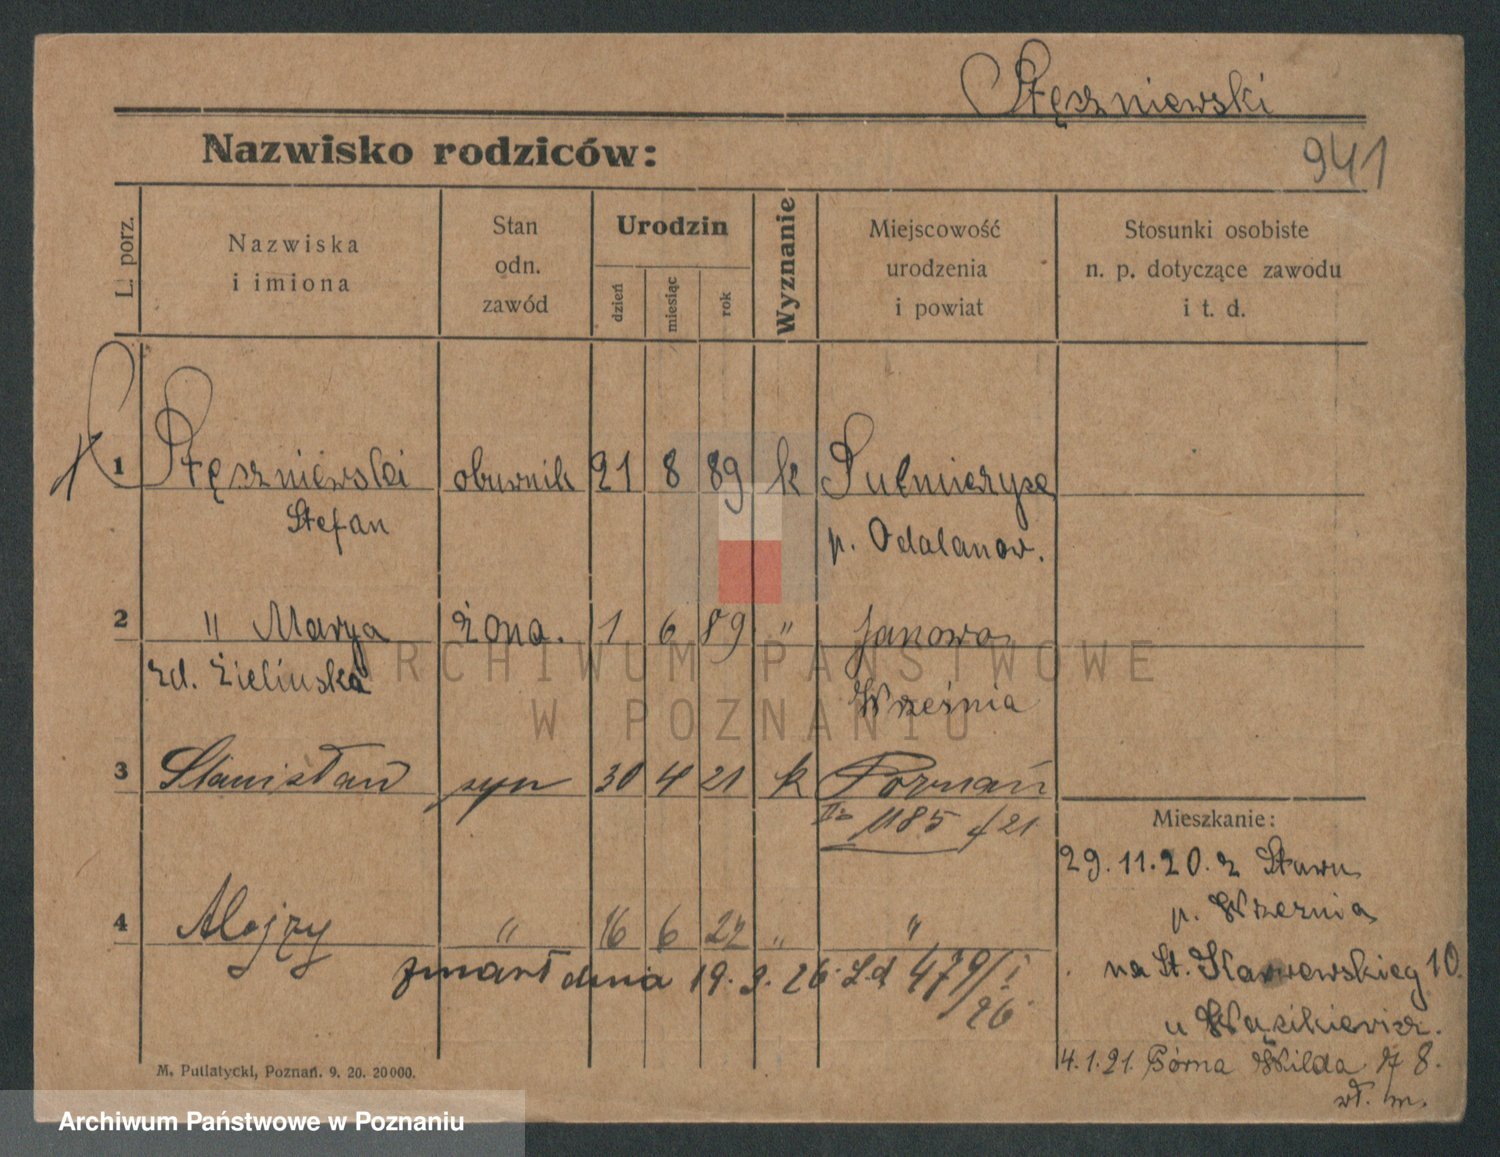 Stęszniewski
Nazwisko rodziców:
941
L. porz.
Nazwiska
i imiona
Stan
odn.
zawód
Urodzin
dzień
miesiąc
rok
Wyznanie
Miejscowość
urodzenia
i powiat
Stosunki osobiste
n. p. dotyczące zawodu
i t. d.
1 Stęszniewski obuwnik 21 8 89 k Sulmierzyce
Stefan p. Odalanow.
2 " Marya żona. 1 6 89 " Janowo
zd. Zielinska Września
3 Stanisław syn 30 4 21 k Poznań
1185 / 21
Mieszkanie:
29.11.20. z Stawu
p. Wrzesnia
4 Alojzy " 16 6 22 " "
zmarł dnia 19. 3. 26. L.d 479/I
26
na St. 10.
u Wąsikiewicz.
4.1.21. Górna Wilda 78.
wł. m.
M. Putiatycki, Poznań. 9. 20. 20000.
ARCHIWUM PAŃSTWOWE
W POZNANIU
Archiwum Państwowe w Poznaniu